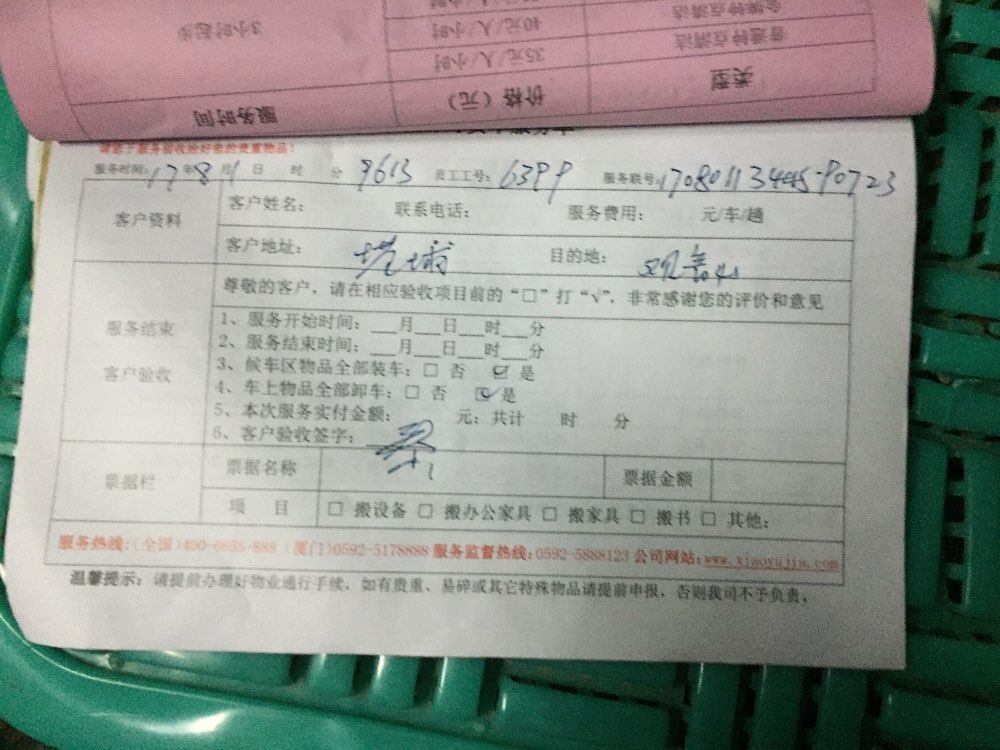 3小时起步
40元/人/小时
金牌特点清洁
35元/人/小时
普通特点清洁
服务时间
价格（元）
类型
服务时间: 17年8月1日 时 分 9613 员工工号: 6399 服务联号:
客户资料
客户姓名: 联系电话: 服务费用: 元/车/趟
客户地址: 塔埔 目的地: 观音山
尊敬的客户，请在相应验收项目前的“□”打“√”，非常感谢您的评价和意见
服务结束
客户验收
1、服务开始时间: ___月___日___时___分
2、服务结束时间: ___月___日___时___分
3、候车区物品全部装车: □ 否 ☑ 是
4、车上物品全部卸车: □ 否 ☑ 是
5、本次服务实付金额: 元; 共计 时 分
6、客户验收签字:
票据栏
票据名称
票据金额
项 目
□ 搬设备 □ 搬办公家具 □ 搬家具 □ 搬书 □ 其他:
服务热线:(全国)400-6655-888 (厦门)0592-5178888 服务监督热线:0592-5888123 公司网站:www.xiaoxujia.com
温馨提示: 请提前办理好物业通行手续，如有贵重、易碎或其它特殊物品请提前申报，否则我司不予负责。